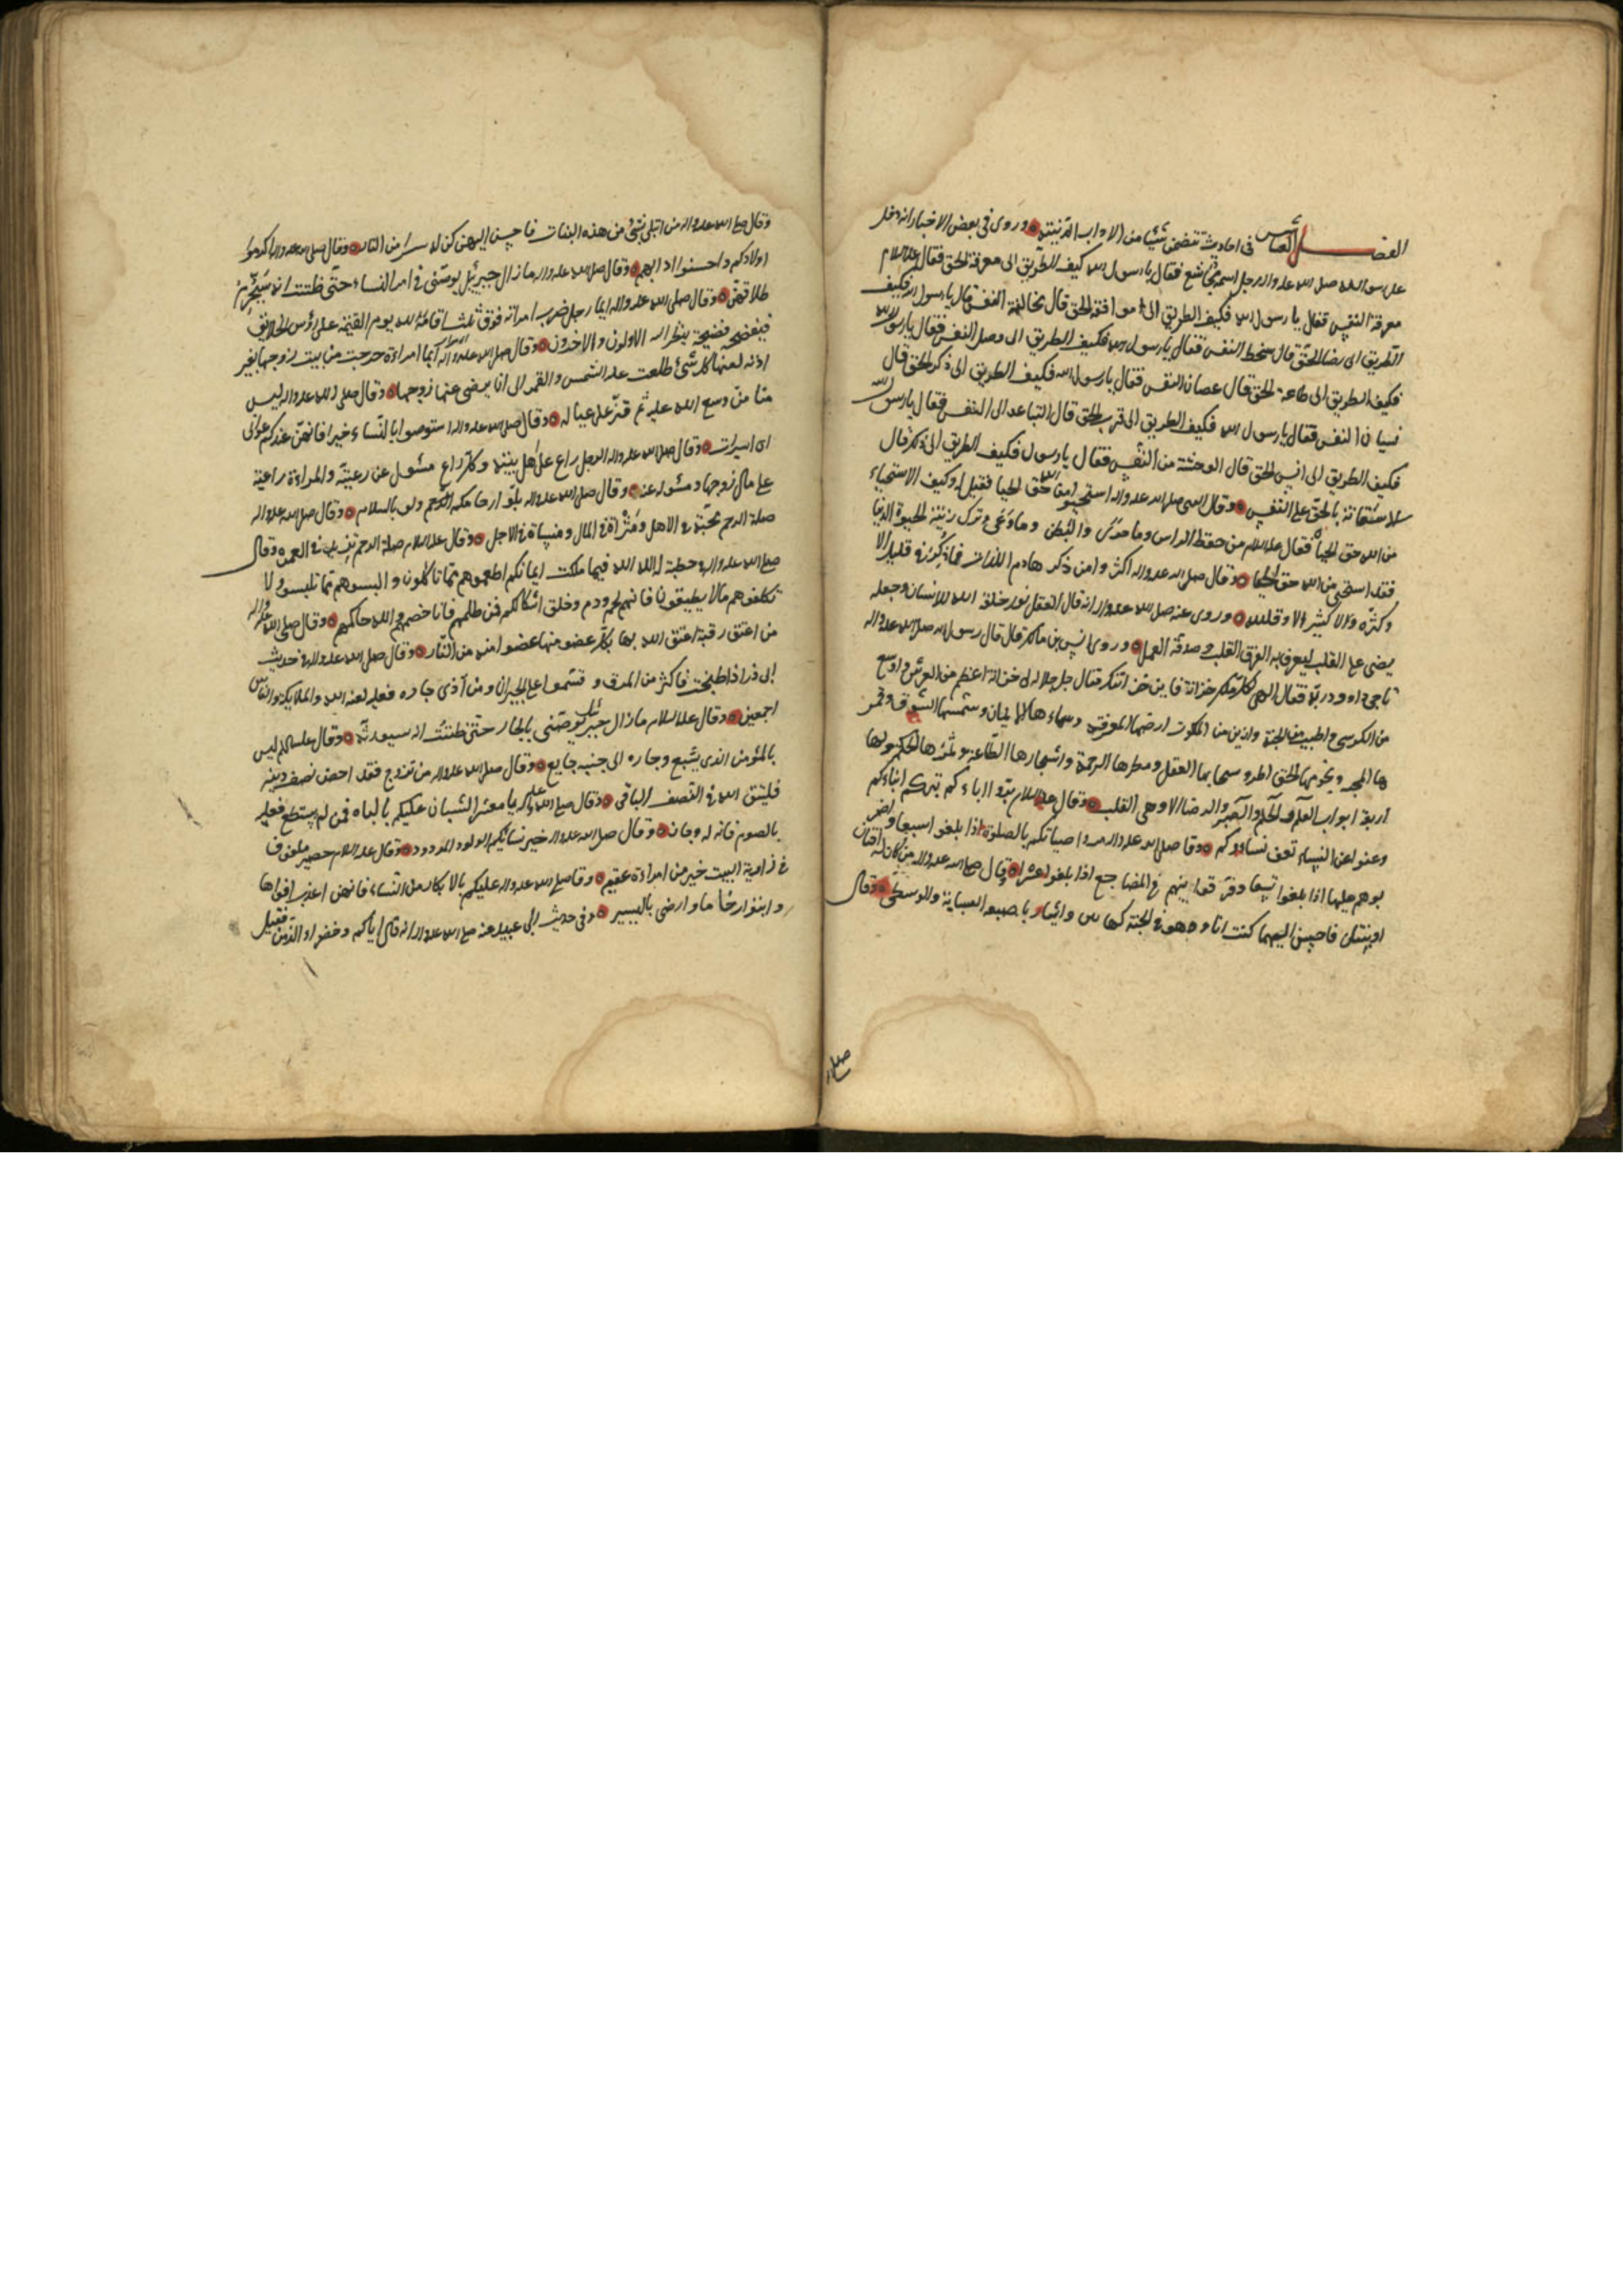 الفصل العاشر في احاديث تتضمن شيئا من الاداب الدينية وروى في بعض الاخبار انه دخل
على رسول الله صلى الله عليه واله رجل اسمه مجاشع فقال يا رسول الله كيف الطريق الى معرفة الحق فقال عليه السلام
معرفة النفس فقال يا رسول الله فكيف الطريق الى موافقة الحق قال مخالفة النفس قال يا رسول الله فكيف
الطريق الى رضا الحق قال سخط النفس فقال يا رسول الله فكيف الطريق الى وصل النفس فقال يا رسول الله
فكيف الطريق الى طاعة الحق قال عصيان النفس فقال يا رسول الله فكيف الطريق الى ذكر الحق قال
نسيان النفس فقال يا رسول الله فكيف الطريق الى قرب الحق قال التباعد الى النفس فقال يا رسول الله
فكيف الطريق الى انس الحق قال الوحشة من النفس فقال يا رسول فكيف الطريق الى ذكر قال
الاستعانة بالحق على النفس وقال النبي صلى الله عليه واله استحيوا من الله حق الحيا فقيل له وكيف الاستحياء
من الله حق الحياء فقال عليه السلام من حفظ الراس وما حوى والبطن وما وعى وترك زينة الحيوة الدنيا
فقد استحيى من الله حق الحيا وقال صلى الله عليه واله اكثروا من ذكر هادم اللذات فما ذكر في قليل الا
وكثره ولا كثير الا وقلله وروى عنه صلى الله عليه واله انه قال العقل نور خلقه الله للانسان وجعله
يضئ على القلب ليعرف به الفرق وروى انس بن مالك قال قال رسول الله صلى الله عليه واله
ناجى داود ربه فقال الهي لكل ملك خزانة فاين خزانتك فقال جل جلاله لي خزانة اعظم من العرش واوسع
من الكرسي واطيب من الجنة وازين من الملكوت ارضها المعرفة وسماءها الايمان وشمسها الشوق وقمر
ها المحبة ونجومها وسحابها العقل ومطرها الرحمة واشجارها الطاعة وثمرها الحكمة ولها
اربعة ابواب العلم والحلم والصبر والرضا الا وهي القلب وقال عليه السلام بروا اباءكم تبركم ابناءكم
وعفوا عن النساء تعف نساؤكم وقال صلى الله عليه واله مروا صبيانكم بالصلوة اذا بلغوا سبعا واضر
بوهم عليها اذا بلغوا تسعا وفرقوا بينهم في المضاجع اذا بلغوا عشرا وقال صلى الله عليه واله من كان له ابنتان
او بنتان فاحسن اليهما كنت انا وهو في الجنة كهاتين واشار باصبعه السبابة والوسطى وقال
وقال صلى الله عليه واله من ابتلي بشئ من هذه البنات فاحسن اليهن كن له سترا من النار وقال صلى الله عليه واله اكرموا
اولادكم واحسنوا ادابهم وقال صلى الله عليه واله ما زال جبرئيل يوصيني في امر النساء حتى ظننت انه سيحرم
طلاقهن وقال صلى الله عليه واله ايما رجل ضرب امراته فوق ثلث اقامه الله يوم القيمة على رؤس الخلايق
فيفضحه فضيحة ينظر اليه الاولون والاخرون وقال صلى الله عليه واله ايما امراءة خرجت من بيت زوجها بغير
اذنه لعنها كل شئ طلعت عليه الشمس والقمر الى ان يرضى عنها زوجها وقال صلى الله عليه واله ليس
منا من وسع الله عليه ثم قتر على عياله وقال صلى الله عليه واله استوصوا بالنساء خيرا فانهن عندكم عوان
اي اسيرات وقال صلى الله عليه واله الرجل راع على اهل بيته وكل راع مسئول عن رعيته والمراءة راعية
على مال زوجها ومسئولة عنه وقال صلى الله عليه واله بلوا ارحامكم ولو بالسلام وقال صلى الله عليه واله
صلة الرحم محبة في الاهل ومثراة في المال ومنساة في الاجل وقال عليه السلام صلة الرحم تزيد في العمر وقال
صلى الله عليه واله في خطبة له الله الله فيما ملكت ايمانكم اطعموهم مما تاكلون والبسوهم مما تلبسون ولا
تكلفوهم ما لا يطيقون فانهم لحم ودم وخلق اشكالكم فمن ظلمهم فانا خصمهم والله حاكمهم وقال صلى الله عليه واله
من اعتق رقبة اعتق الله بها بكل عضو منها عضوا منه من النار وقال صلى الله عليه واله في حديث
ابي ذر اذا طبخت فاكثر من المرق وقسموا على الجيران ومن آذى جاره فعليه لعنة الله والملايكة والناس
اجمعين وقال عليه السلام ما زال جبرئيل يوصيني بالجار حتى ظننت انه سيورثه وقال عليه السلام ليس
بالمؤمن الذي يشبع وجاره الى جنبه جايع وقال صلى الله عليه واله من تزوج فقد احصن نصف دينه
فليتق الله في النصف الباقي وقال صلى الله عليه واله يا معشر الشبان عليكم بالباه فمن لم يستطع فعليه
بالصوم فانه له وجاء وقال صلى الله عليه واله خير نسائكم الولود الودود وقال عليه السلام حصير ملفوف
في زاوية البيت خير من امراءة عقيم وقال صلى الله عليه واله عليكم بالابكار من النساء فانهن اعذب افواها
وانتق ارحاما وارضى باليسير وفي حديث ابي عبيد عنه صلى الله عليه واله انه قال اياكم وخضراء الدمن فقيل